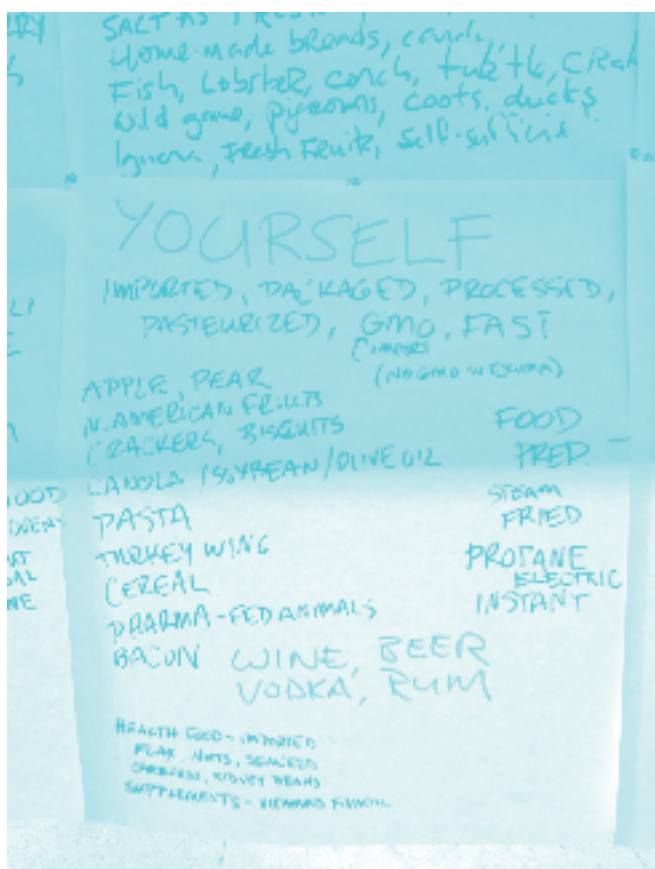 SALT AS FRESH
Home-made breads, candy,
Fish, Lobster, conch, turtle, Crab
wild game, pigeons, coots, ducks
Iguana, Fresh Fruit, self-
YOURSELF
IMPORTED, PACKAGED, PROCESSED,
PASTEURIZED, GMO, FAST
(IMPORT
(NO GMO IN EXUMA)
APPLE, PEAR
N. AMERICAN FRUITS
CRACKERS, BISQUITS
CANOLA / SOYBEAN / OLIVE OIL
PASTA
TURKEY WING
CEREAL
PHARMA-FED ANIMALS
BACON WINE, BEER
VODKA, RUM
FOOD
PREP.
STEAM
FRIED
PROPANE
ELECTRIC
INSTANT
HEALTH FOOD - IMPORTED
FLAX, NUTS, SEAWEED
KIDNEY BEANS
SUPPLEMENTS - VITAMINS